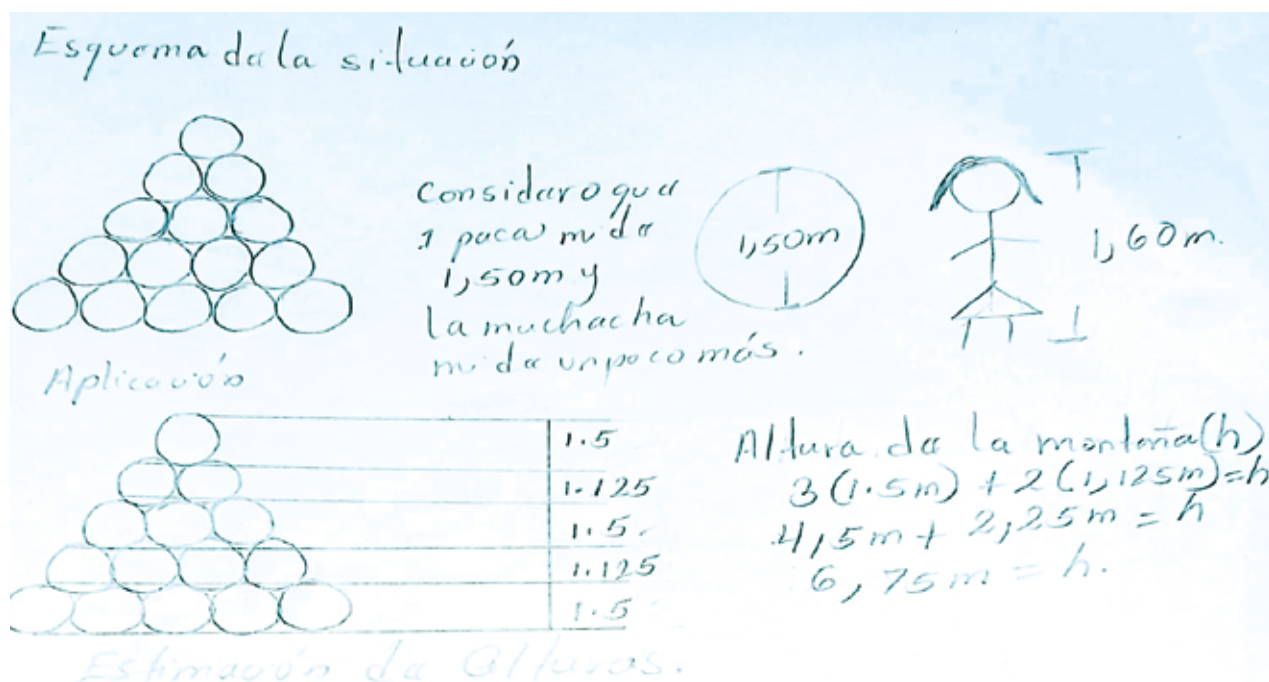 Esquema de la situación
Considero que
1 paca mide
1,50m y
la muchacha
mide un poco más.
1,50m
1,60m.
Aplicación
1.5
1.125
1.5.
1.125
1.5
Altura de la montaña(h)
3(1.5m) + 2(1,125m)=h
4,5m + 2,25m = h
6,75m = h.
Estimación de Alturas.